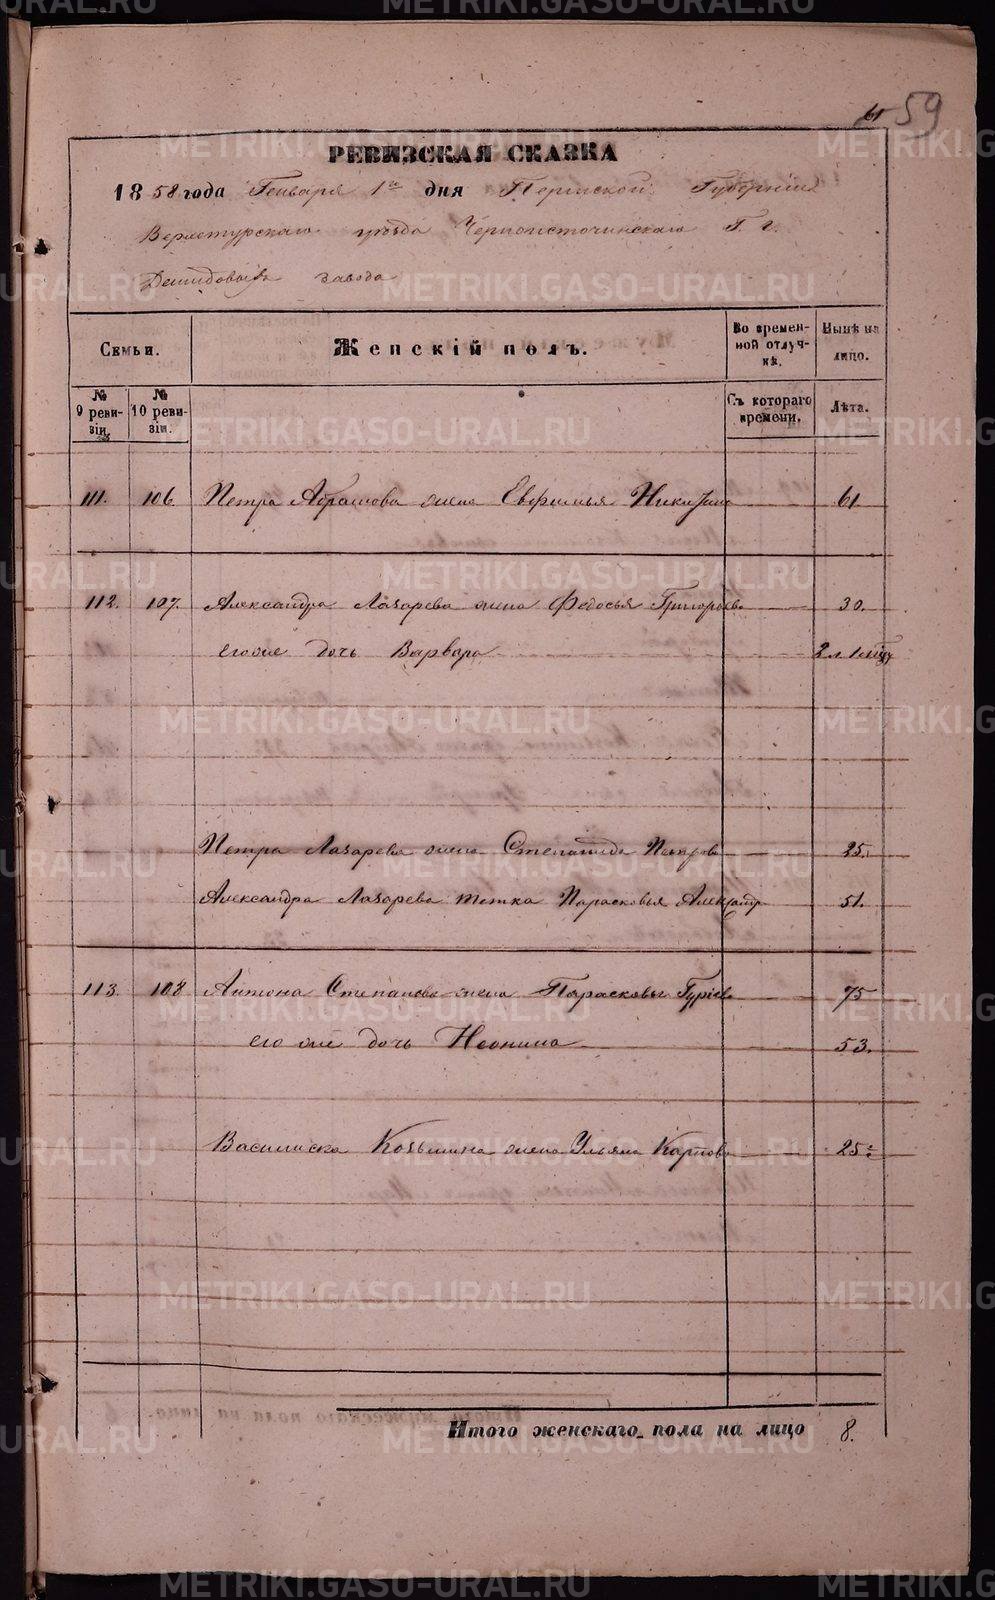 61 59
РЕВИЗСКАЯ СКАЗКА
1858 года Генваря 1го дня Пермской Губерніи
Верхотурскаго уѣзда Черноисточинскаго Г. г.
Демидовыхъ завода
Семьи.
Женскій полъ.
Во времен-
ной отлуч-
кѣ.
Нынѣ на
лицо.
№
9 реви-
зіи.
№
10 реви-
зіи.
Съ котораго
времени.
Лѣта.
111. 106. Петра Абрамова жена Евфимья Никитина 61.
112. 107. Александра Лазарева жена Федосья Григорьева 30.
его же дочь Варвара 2 л. 1 мцу
Петра Лазарева жена Степанида Петрова 25.
Александра Лазарева тетка Парасковья Александр 51.
113. 108 Антона Степанова жена Парасковья Гуріева 75
его же дочь Неонила 53.
Василиска Козьмина жена Ульяна Карпова 25.
Итого женскаго пола на лицо 8.
METRIKI.GASO-URAL.RU